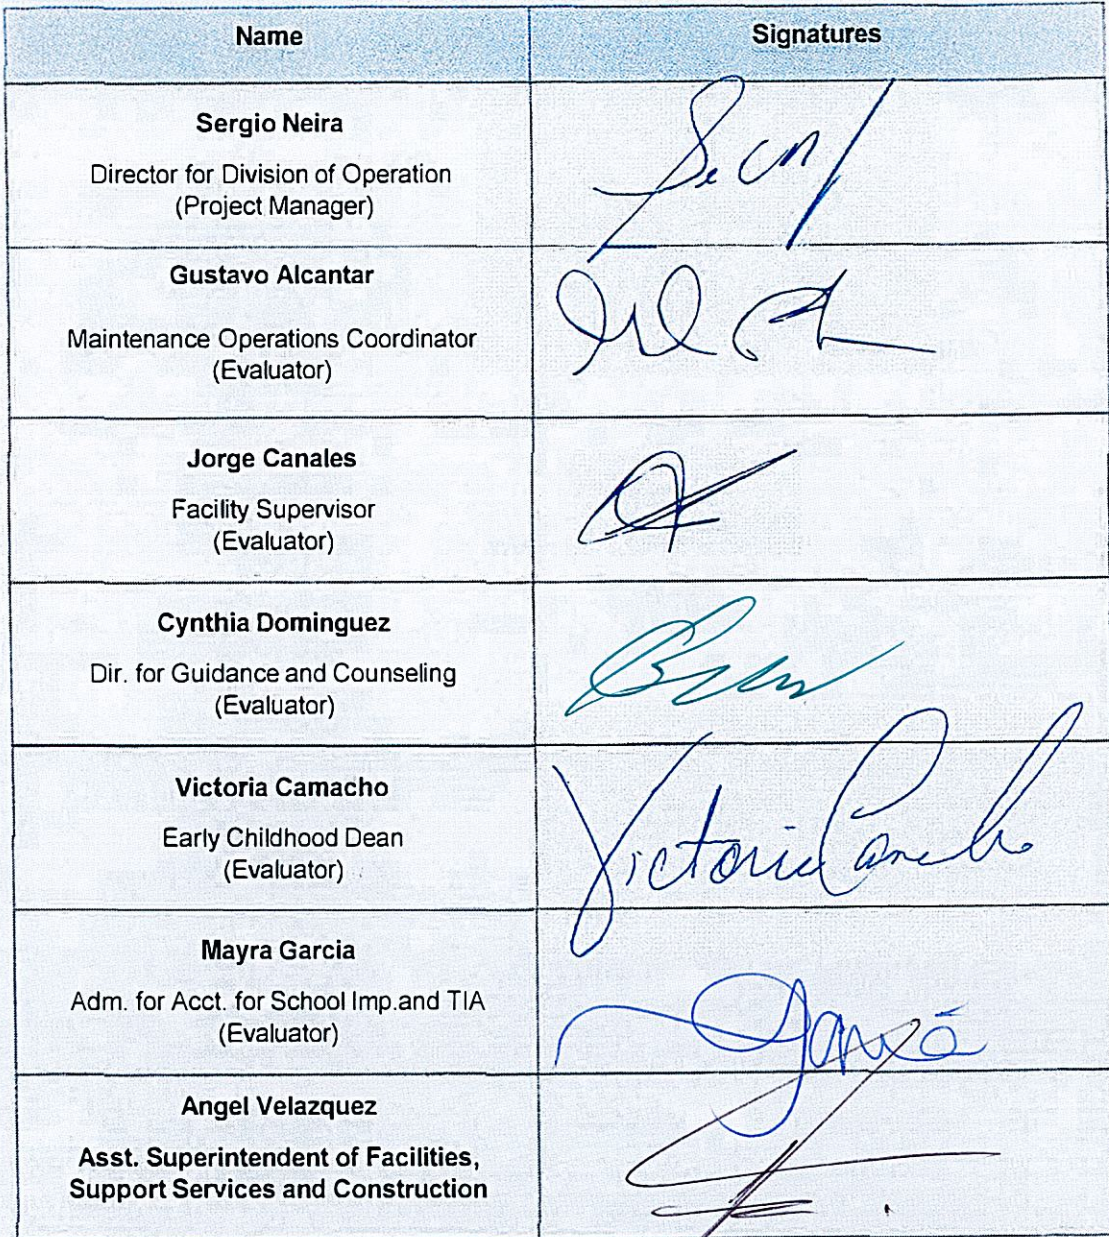 Name
Signatures
Sergio Neira
Director for Division of Operation
(Project Manager)
Gustavo Alcantar
Maintenance Operations Coordinator
(Evaluator)
Jorge Canales
Facility Supervisor
(Evaluator)
Cynthia Dominguez
Dir. for Guidance and Counseling
(Evaluator)
Victoria Camacho
Early Childhood Dean
(Evaluator)
Victoria Camacho
Mayra Garcia
Adm. for Acct. for School Imp.and TIA
(Evaluator)
Angel Velazquez
Asst. Superintendent of Facilities,
Support Services and Construction